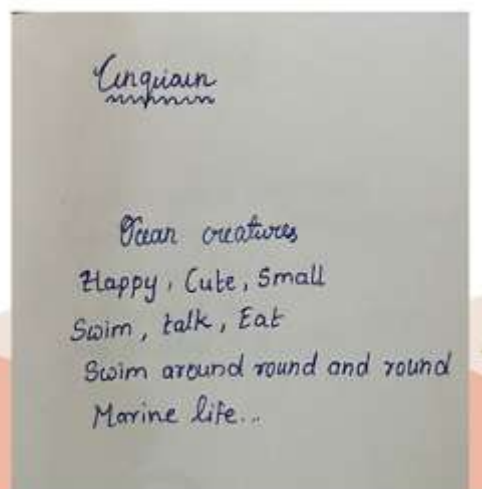 Cinquain
Ocean creatures
Happy, Cute, Small
Swim, talk, Eat
Swim around round and round
Marine life...